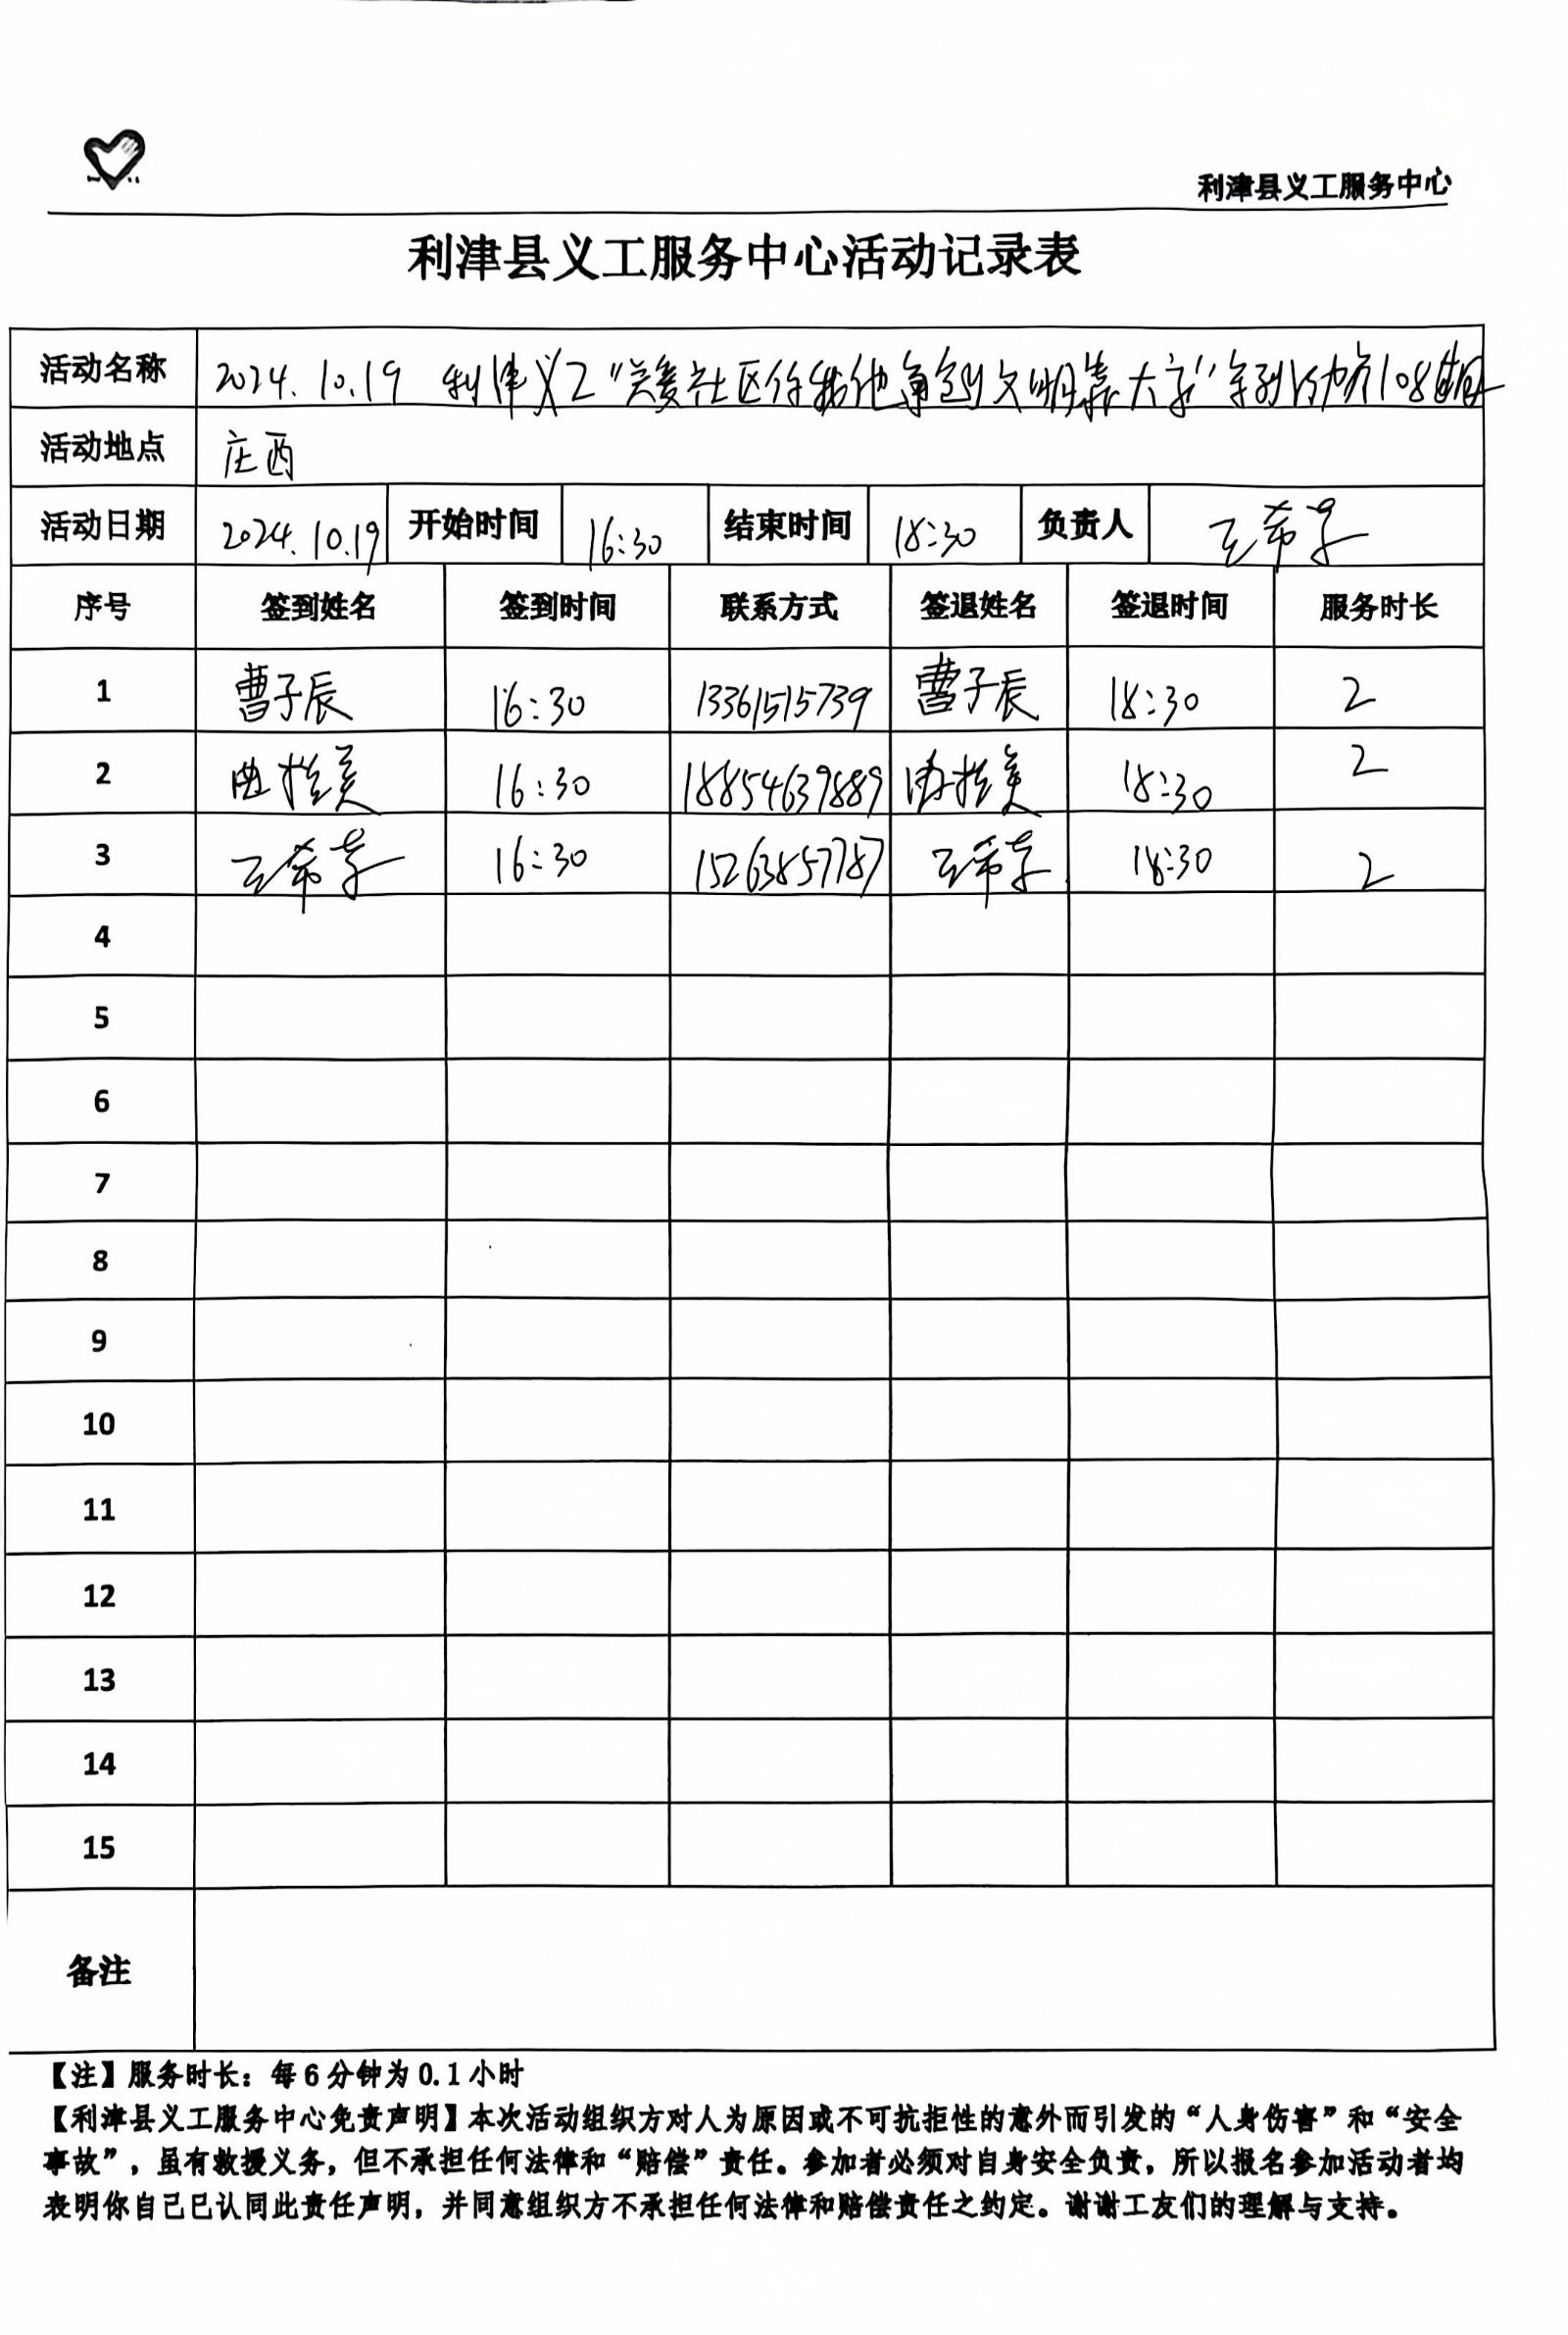 利津县义工服务中心
利津县义工服务中心活动记录表
活动名称 2024.10.19 利津义工“关爱社区你我他 争创文明靠大家”系列活动第108期
活动地点 庄西
活动日期 2024.10.19 开始时间 16:30 结束时间 18:30 负责人 王希孝
序号 签到姓名 签到时间 联系方式 签退姓名 签退时间 服务时长
1 曹子辰 16:30 13361515739 曹子辰 18:30 2
2 16:30 18854639889 18:30 2
3 王希孝 16:30 15263857787 王希孝 18:30 2
4
5
6
7
8
9
10
11
12
13
14
15
备注
【注】服务时长：每6分钟为0.1小时
【利津县义工服务中心免责声明】本次活动组织方对人为原因或不可抗拒性的意外而引发的“人身伤害”和“安全
事故”，虽有救援义务，但不承担任何法律和“赔偿”责任。参加者必须对自身安全负责，所以报名参加活动者均
表明你自己已认同此责任声明，并同意组织方不承担任何法律和赔偿责任之约定。谢谢工友们的理解与支持。